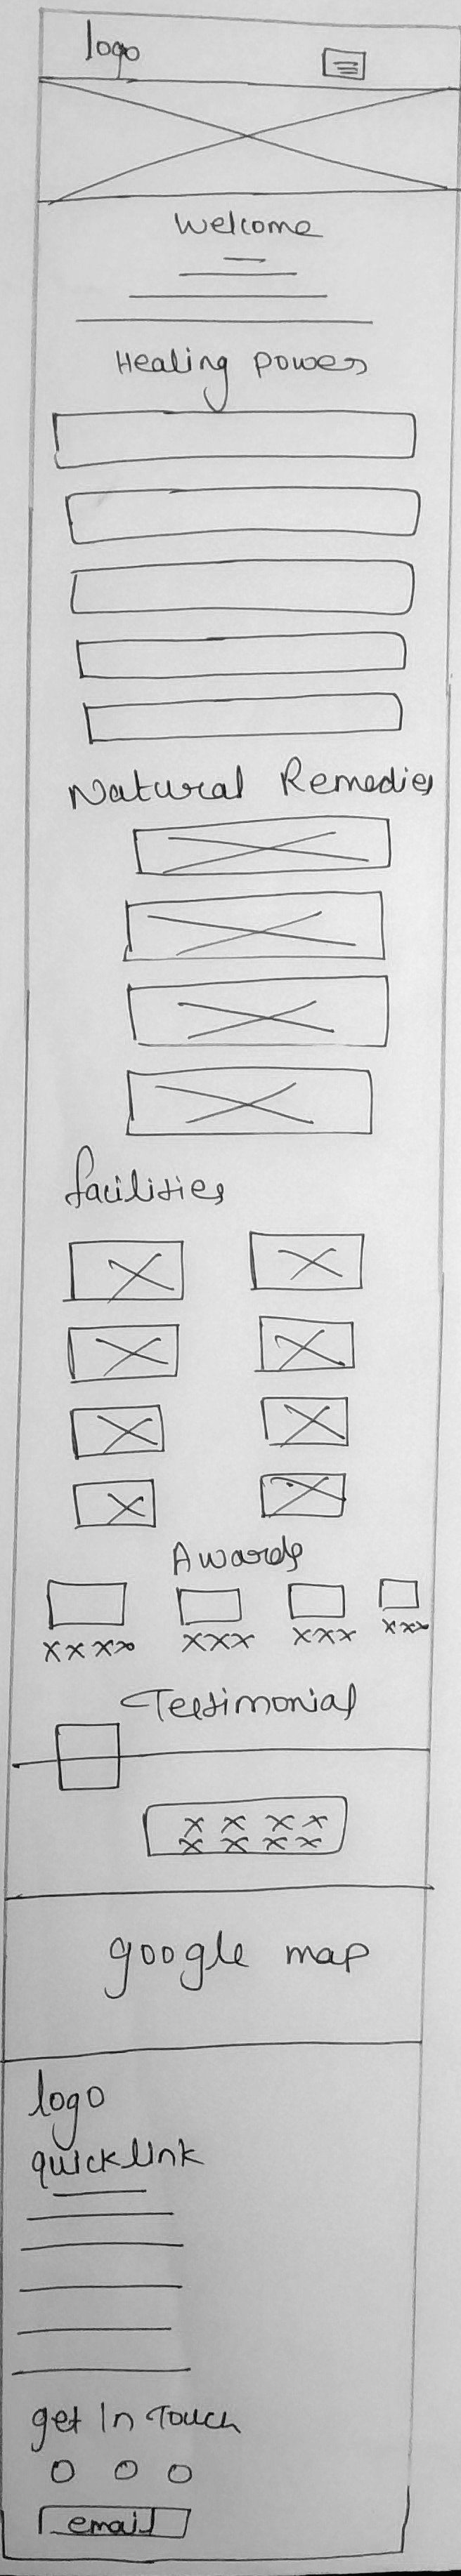 logo
Welcome
Healing power
Natural Remedies
facilities
Awards
xxxx xxx xxx xxx
Testimonial
x x x x
x x x x
google map
logo
quick link
get In Touch
email